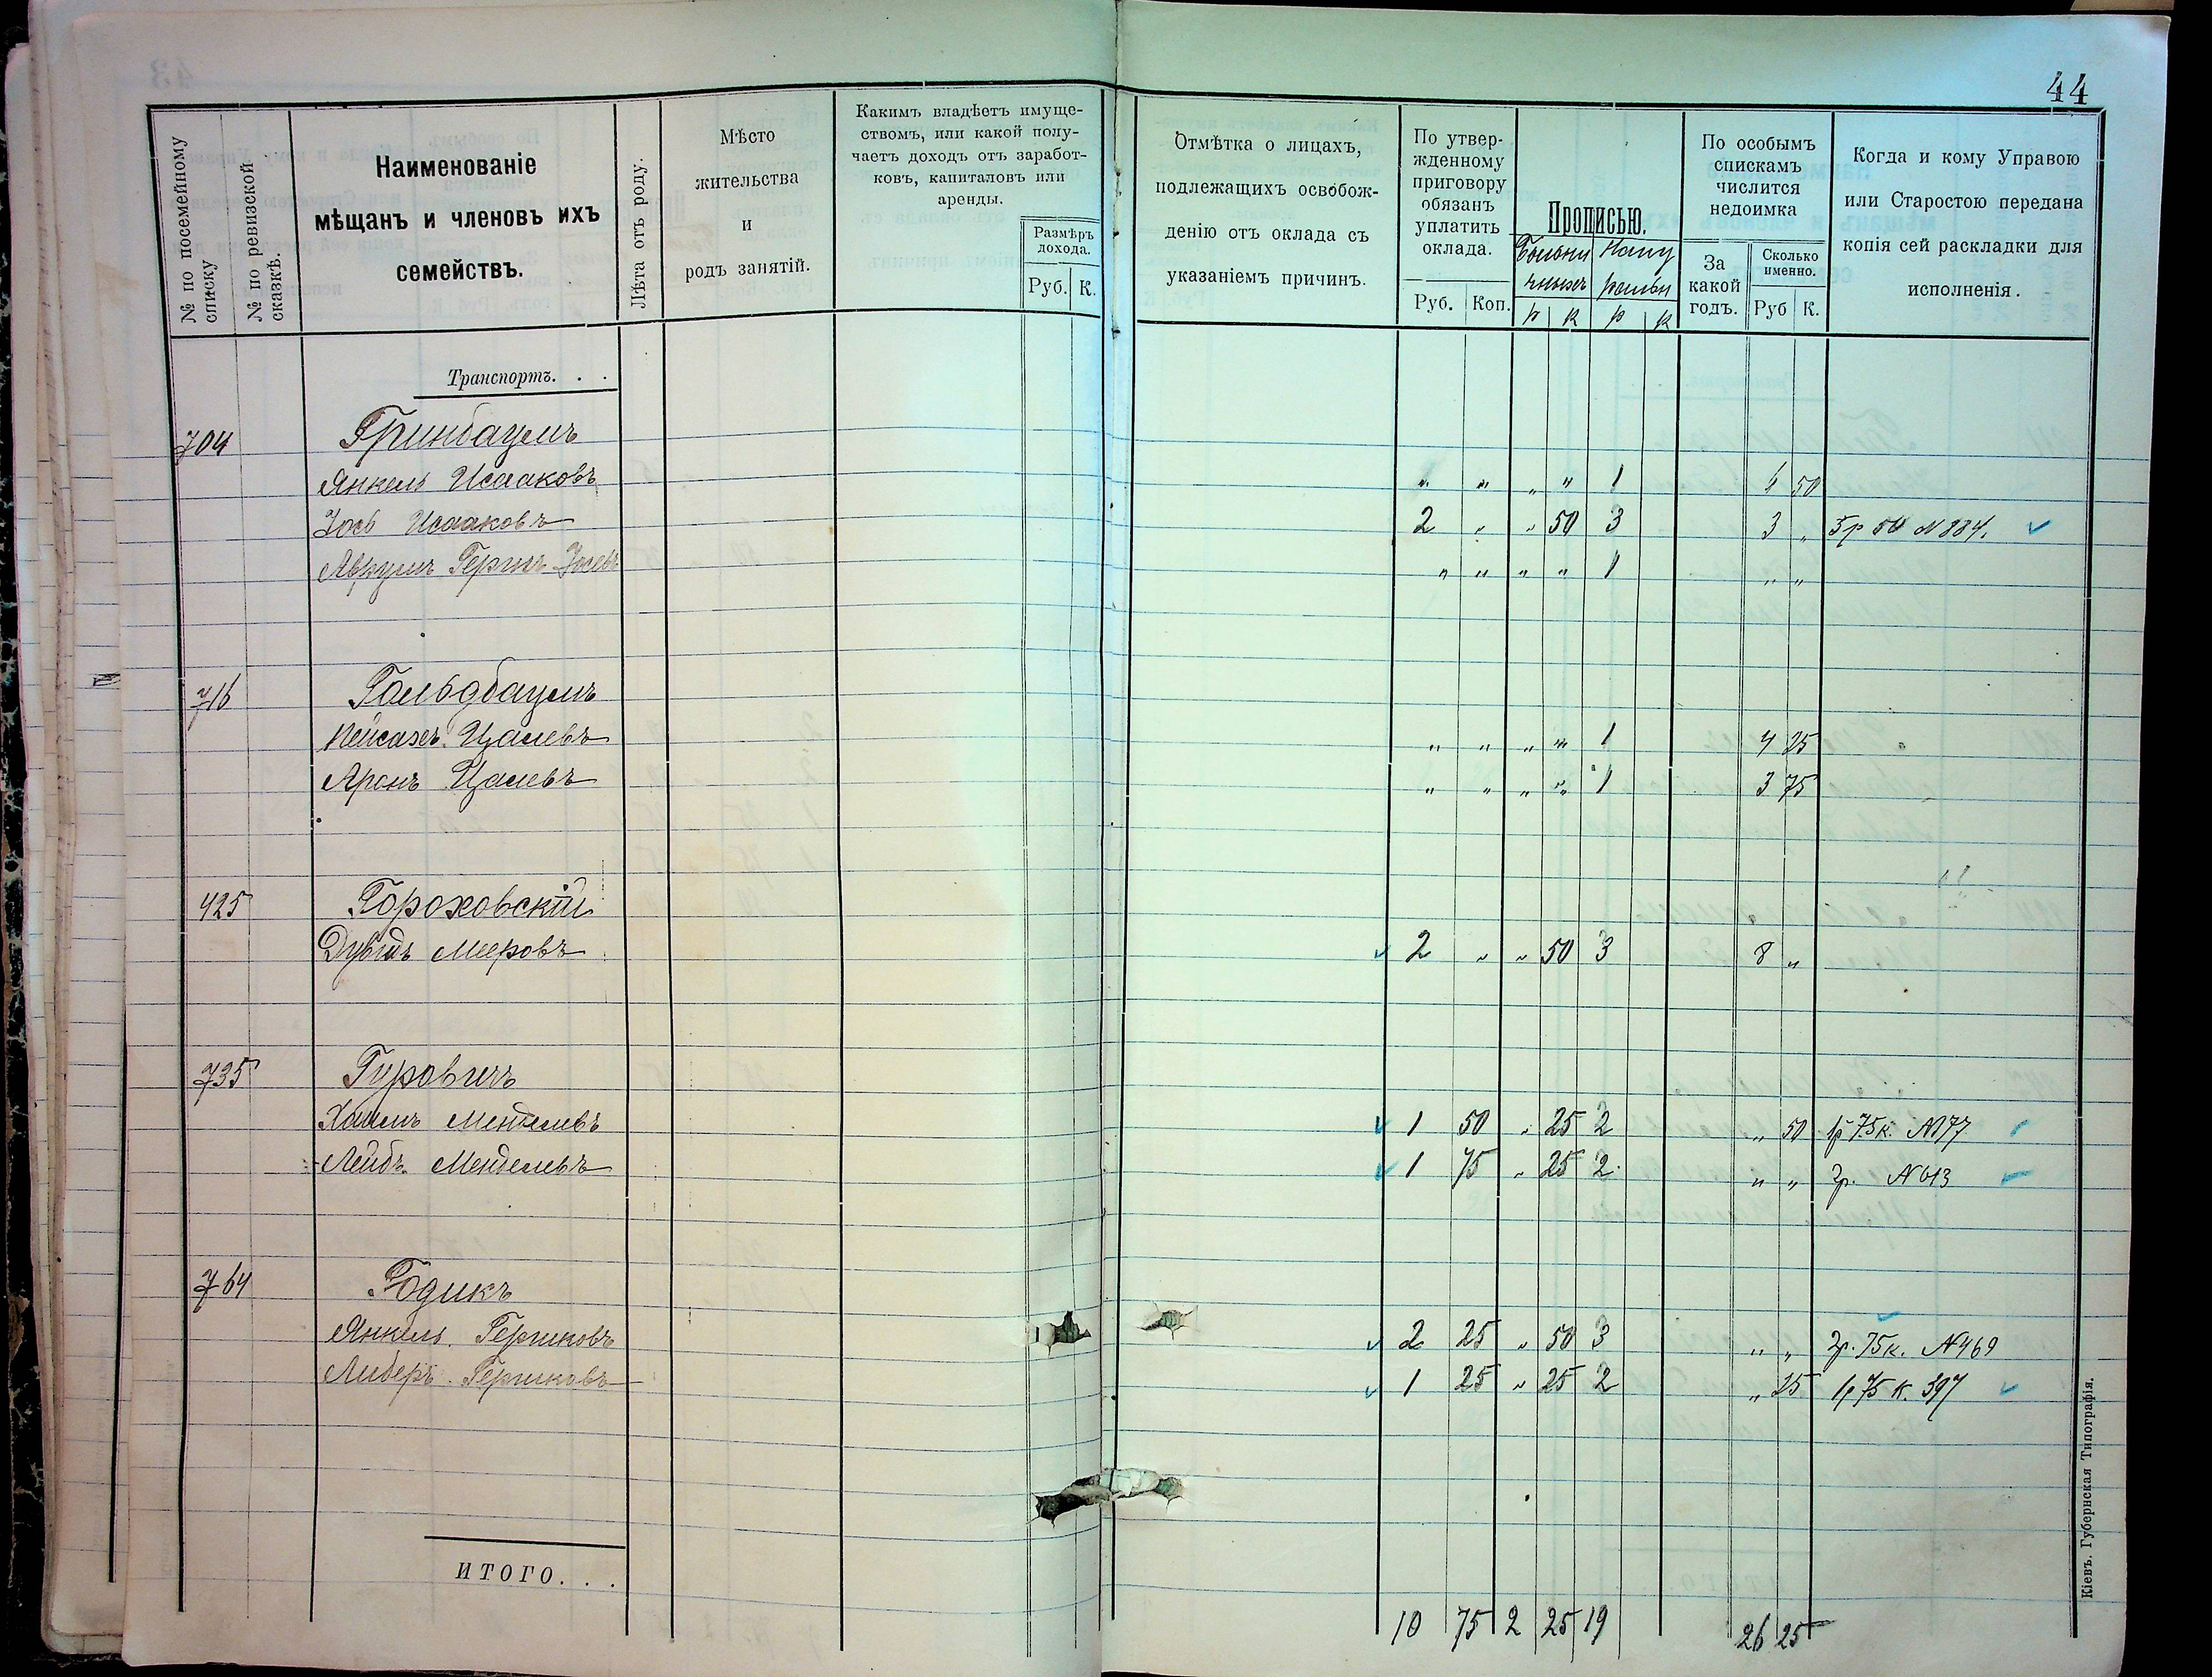 44
№ по посемейному списку
№ по ревизской сказкѣ.
Наименованіе
мѣщанъ и членовъ ихъ
семействъ.
Лѣта отъ роду.
Мѣсто
жительства
и
родъ занятій.
Какимъ владѣетъ имуще-
ствомъ, или какой полу-
чаетъ доходъ отъ заработ-
ковъ, капиталовъ или
аренды.
Размѣръ
дохода.
Руб. К.
Отмѣтка о лицахъ,
подлежащихъ освобож-
денію отъ оклада съ
указаніемъ причинъ.
По утвер-
жденному
приговору
обязанъ
уплатить
оклада.
Руб. Коп.
Прописью.
р к р к
По особымъ
спискамъ
числится
недоимка
За
какой
годъ.
Сколько
именно.
Руб К.
Когда и кому Управою
или Старостою передана
копія сей раскладки для
исполненія.
Транспортъ. . .
704 Гринбаумъ
Янкель Исааковъ " " " " 1 50
Іось Исааковъ 2 " " 50 3 3 " 5р 50 N 884.
Аврумъ Гершъ Іосевъ " " " " 1 " "
716 Гольдбаумъ
Нейсахъ Цалевъ " " " " 1 4 25
Аронъ Цалевъ " " " " 1 3 75
425 Гороховскій
Дувидъ Мееровъ 2 " " 50 3 8 "
735 Гуровичъ
Хаимъ Менделевъ 1 50 " 25 2 " 50 1р 75к. N177
Лейбъ Менделевъ 1 75 " 25 2 " " 2р. N 613
764 Годикъ
Янкель Гершковъ 2 25 " 50 3 " " 2р. 75к. N469
Либеръ Гершковъ 1 25 " 25 2 " 25 1р 75 к. 397
ИТОГО. . .
10 75 2 25 19 26 25
Кіевъ. Губернская Типографія.